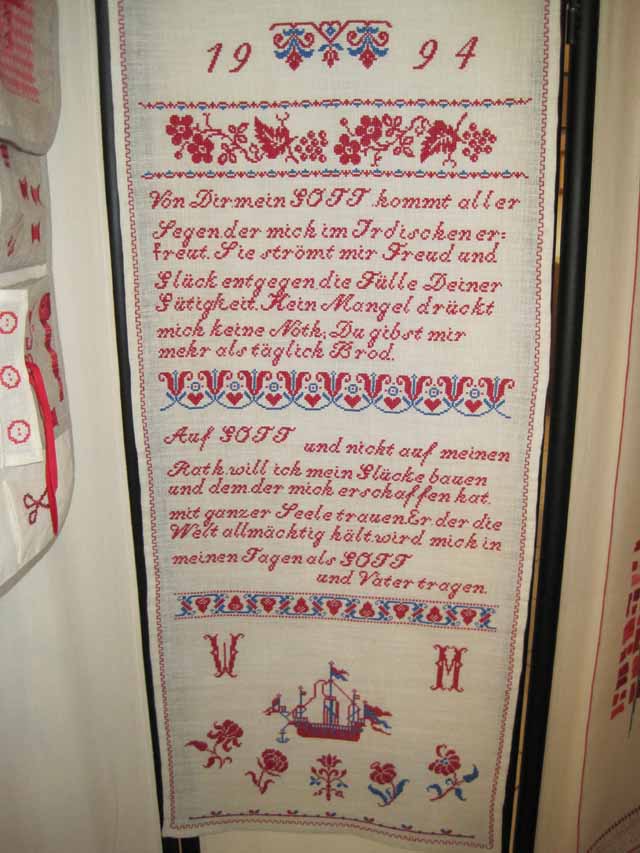 1994
Von Dir mein GOTT kommt aller
Segen der mich im Irdischen er=
freut. Sie strömt mir Freud und
Glück entgegen, die Fülle Deiner
Gütigkeit. Kein Mangel drückt
mich keine Nöth, Du gibst mir
mehr als täglich Brod.
Auf GOTT und nicht auf meinen
Rath will ich mein Glücke bauen
und dem der mich erschaffen hat,
mit ganzer Seele trauen Er, der die
Welt allmächtig hält, wird mich in
meinen Tagen als GOTT
und Vater tragen.
W M